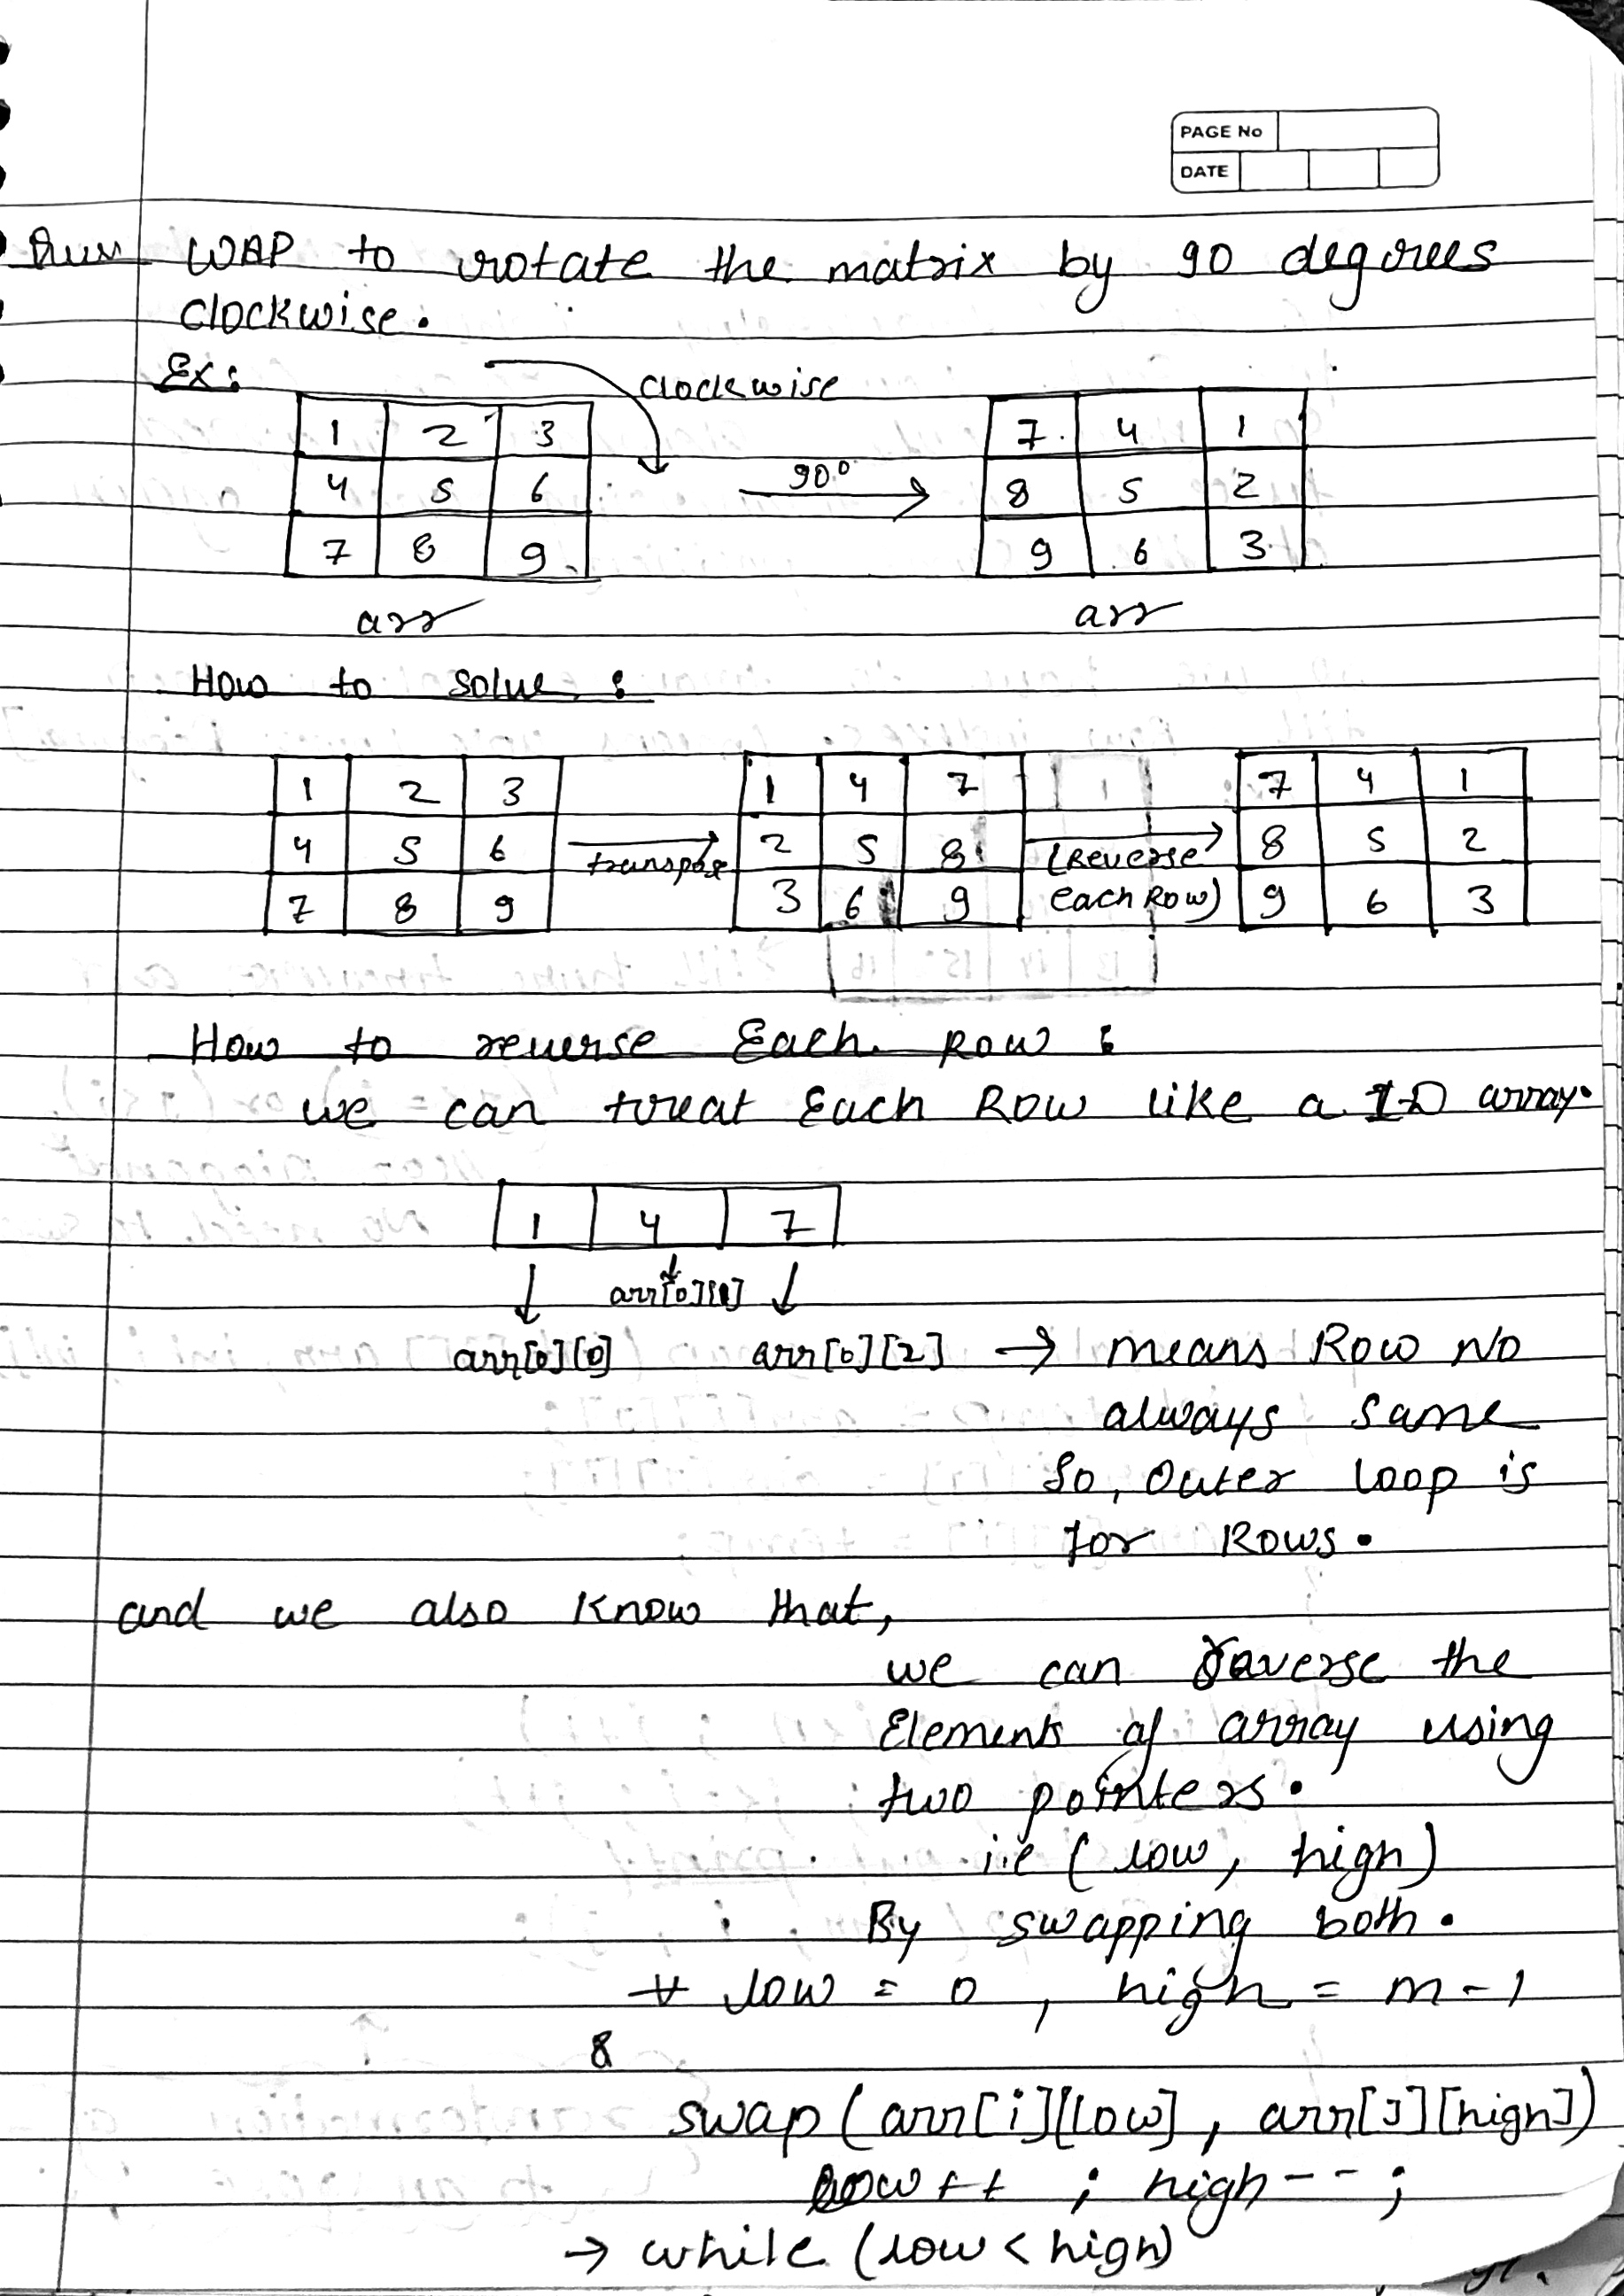 PAGE No
DATE
Ques WAP to rotate the matrix by 90 degrees
clockwise.
Ex:
clockwise
1 2 3
4 5 6
7 8 9
90°
7 4 1
8 5 2
9 6 3
arr
arr
How to solve :
1 2 3
4 5 6
7 8 9
transpose
1 4 7
2 5 8
3 6 9
(Reverse
each Row)
7 4 1
8 5 2
9 6 3
How to reverse Each Row :
we can treat Each Row like a 1D array.
1 4 7
↓ ↓ ↓
arr[0][1]
arr[0][0] arr[0][2] → means Row No
always same
So, Outer loop is
for Rows.
and we also know that,
we can reverse the
Elements of array using
two pointers.
i.e (low, high)
By swapping both.
low = 0 , high = m-1
&
swap(arr[i][low], arr[j][high])
low++ ; high-- ;
→ while (low < high)